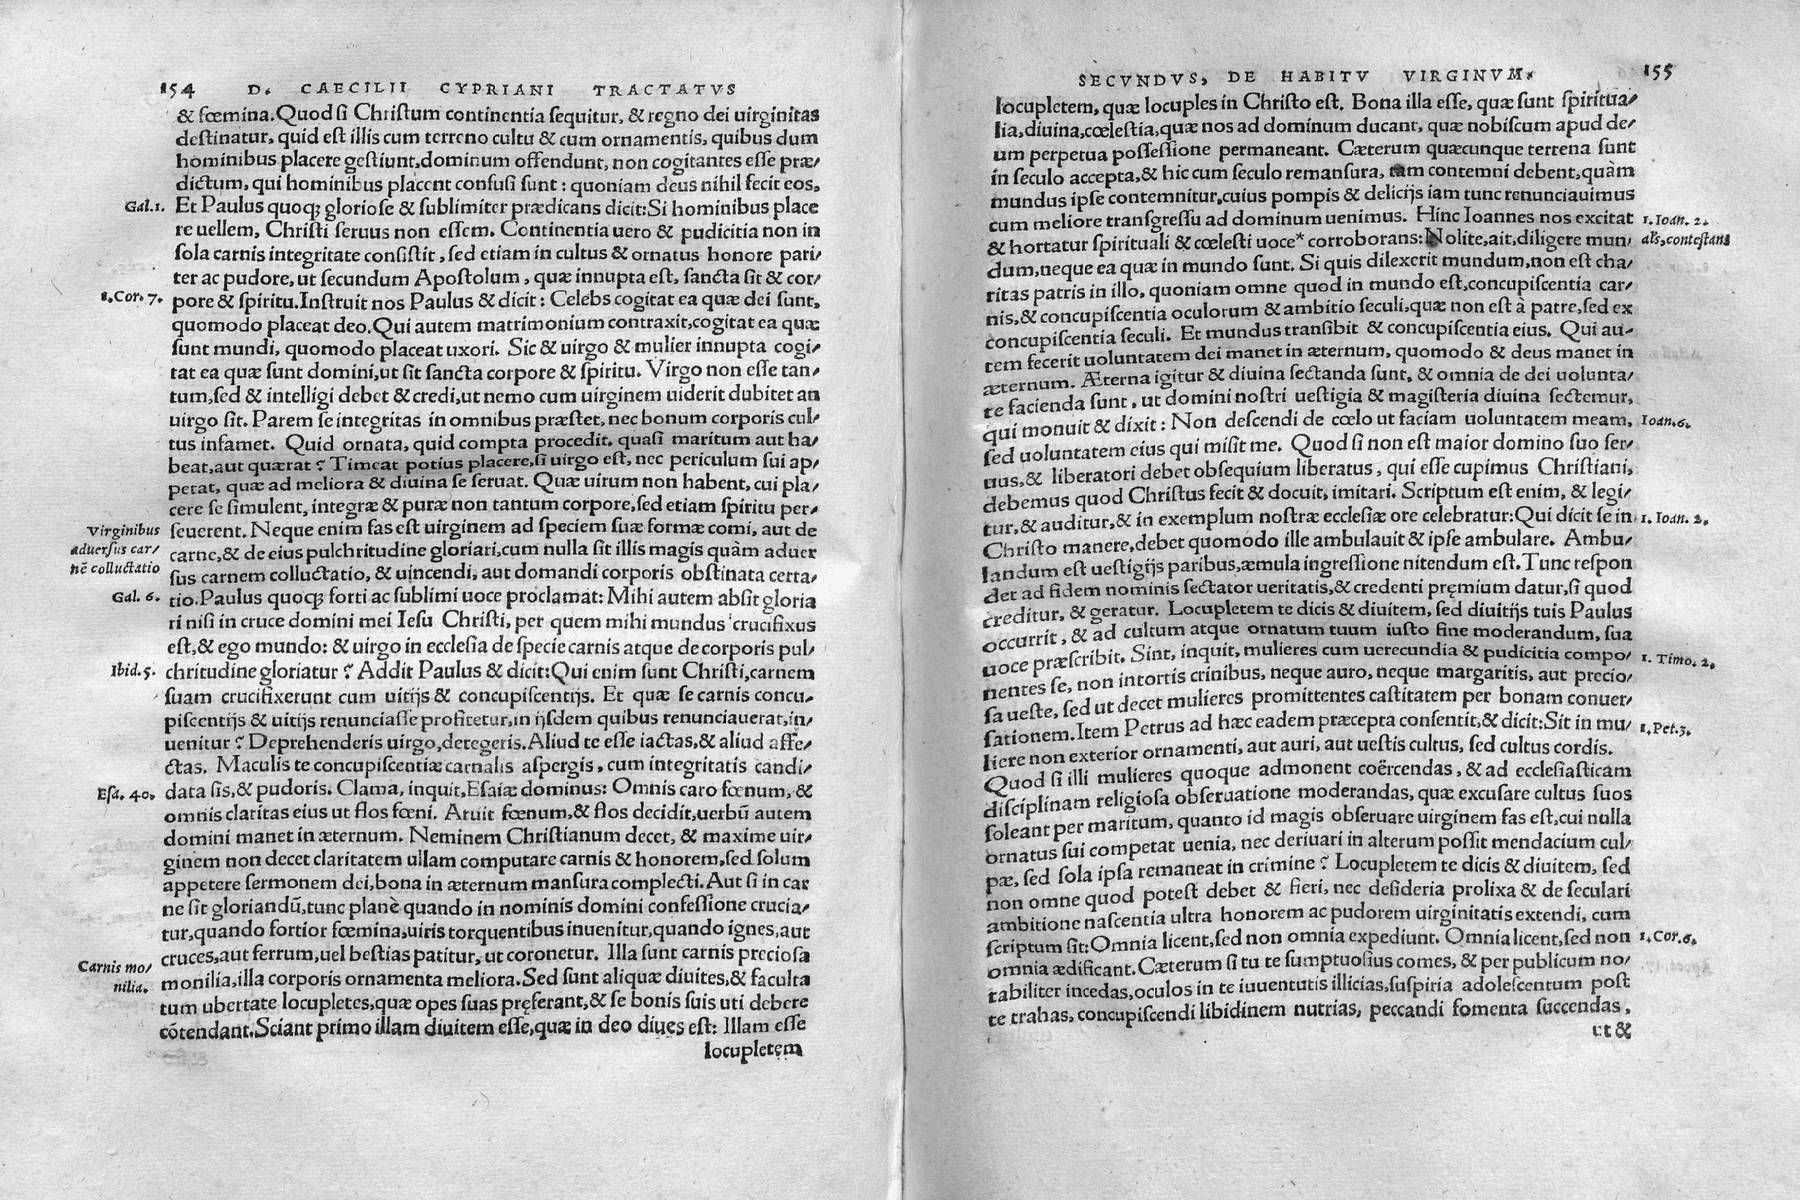 154 D. CAECILII CYPRIANI TRACTATVS
& fœmina. Quod si Christum continentia sequitur, & regno dei uirginitas
destinatur, quid est illis cum terreno cultu & cum ornamentis, quibus dum
hominibus placere gestiunt, dominum offendunt, non cogitantes esse præ/
dictum, qui hominibus placent confusi sunt: quoniam deus nihil fecit eos.
Gal.1. Et Paulus quoq; gloriose & sublimiter prædicans dicit: Si hominibus place
re uellem, Christi seruus non essem. Continentia uero & pudicitia non in
sola carnis integritate consistit, sed etiam in cultus & ornatus honore pari/
ter ac pudore, ut secundum Apostolum, quæ innupta est, sancta sit & cor/
1.Cor.7. pore & spiritu. Instruit nos Paulus & dicit: Celebs cogitat ea quæ dei sunt,
quomodo placeat deo. Qui autem matrimonium contraxit, cogitat ea quæ
sunt mundi, quomodo placeat uxori. Sic & uirgo & mulier innupta cogi/
tat ea quæ sunt domini, ut sit sancta corpore & spiritu. Virgo non esse tan/
tum, sed & intelligi debet & credi, ut nemo cum uirginem uiderit dubitet an
uirgo sit. Parem se integritas in omnibus præstet, nec bonum corporis cul/
tus infamet. Quid ornata, quid compta procedit, quasi maritum aut ha/
beat, aut quærat? Timeat potius placere, si uirgo est, nec periculum sui ap/
petat, quæ ad meliora & diuina se seruat. Quæ uirum non habent, cui pla/
cere se simulent, integræ & puræ non tantum corpore, sed etiam spiritu per/
Virginibus seuerent. Neque enim fas est uirginem ad speciem suæ formæ comi, aut de
aduersus car/ carne, & de eius pulchritudine gloriari, cum nulla sit illis magis quàm aduer
nẽ colluctatio sus carnem colluctatio, & uincendi, aut domandi corporis obstinata certa/
Gal. 6. tio. Paulus quoq; forti ac sublimi uoce proclamat: Mihi autem absit gloria
ri nisi in cruce domini mei Iesu Christi, per quem mihi mundus crucifixus
est, & ego mundo: & uirgo in ecclesia de specie carnis atque de corporis pul/
Ibid. 5. chritudine gloriatur? Addit Paulus & dicit: Qui enim sunt Christi, carnem
suam crucifixerunt cum uitijs & concupiscentijs. Et quæ se carnis concu/
piscentijs & uitijs renunciasse profitetur, in ijsdem quibus renunciauerat, in/
uenitur? Deprehenderis uirgo, detegeris. Aliud te esse iactas, & aliud affe/
ctas. Maculis te concupiscentiæ carnalis aspergis, cum integritatis candi/
Esa. 40. data sis, & pudoris. Clama, inquit, Esaiæ dominus: Omnis caro fœnum, &
omnis claritas eius ut flos fœni. Aruit fœnum, & flos decidit, uerbũ autem
domini manet in æternum. Neminem Christianum decet, & maxime uir/
ginem non decet claritatem ullam computare carnis & honorem, sed solum
appetere sermonem dei, bona in æternum mansura complecti. Aut si in car
ne sit gloriandũ, tunc planè quando in nominis domini confessione crucia/
tur, quando fortior fœmina, uiris torquentibus inuenitur, quando ignes, aut
cruces, aut ferrum, uel bestias patitur, ut coronetur. Illa sunt carnis preciosa
Carnis mo/ monilia, illa corporis ornamenta meliora. Sed sunt aliquæ diuites, & faculta
nilia. tum ubertate locupletes, quæ opes suas pręferant, & se bonis suis uti debere
cõtendant. Sciant primo illam diuitem esse, quæ in deo diues est: Illam esse
locupletem
SECVNDVS, DE HABITV VIRGINVM. 155
locupletem, quæ locuples in Christo est. Bona illa esse, quæ sunt spiritua/
lia, diuina, cœlestia, quæ nos ad dominum ducant, quæ nobiscum apud de/
um perpetua possessione permaneant. Cæterum quæcunque terrena sunt
in seculo accepta, & hic cum seculo remansura, tam contemni debent, quàm
mundus ipse contemnitur, cuius pompis & delicijs iam tunc renunciauimus
cum meliore transgressu ad dominum uenimus. Hinc Ioannes nos excitat 1. Ioan. 2.
& hortatur spirituali & cœlesti uoce* corroborans: Nolite, ait, diligere mun/ als, contestans
dum, neque ea quæ in mundo sunt. Si quis dilexerit mundum, non est cha/
ritas patris in illo, quoniam omne quod in mundo est, concupiscentia car/
nis, & concupiscentia oculorum & ambitio seculi, quæ non est à patre, sed ex
concupiscentia seculi. Et mundus transibit & concupiscentia eius. Qui au/
tem fecerit uoluntatem dei manet in æternum, quomodo & deus manet in
æternum. Æterna igitur & diuina sectanda sunt, & omnia de dei uolunta/
te facienda sunt, ut domini nostri uestigia & magisteria diuina sectemur,
qui monuit & dixit: Non descendi de cœlo ut faciam uoluntatem meam, Ioan.6.
sed uoluntatem eius qui misit me. Quod si non est maior domino suo ser/
uus, & liberatori debet obsequium liberatus, qui esse cupimus Christiani,
debemus quod Christus fecit & docuit, imitari. Scriptum est enim, & legi/
tur, & auditur, & in exemplum nostræ ecclesiæ ore celebratur: Qui dicit se in 1. Ioan. 2.
Christo manere, debet quomodo ille ambulauit & ipse ambulare. Ambu/
landum est uestigijs paribus, æmula ingressione nitendum est. Tunc respon
det ad fidem nominis sectator ueritatis, & credenti pręmium datur, si quod
creditur, & geratur. Locupletem te dicis & diuitem, sed diuitijs tuis Paulus
occurrit, & ad cultum atque ornatum tuum iusto fine moderandum, sua
uoce præscribit. Sint, inquit, mulieres cum uerecundia & pudicitia compo/ 1. Timo. 2.
nentes se, non intortis crinibus, neque auro, neque margaritis, aut precio/
sa ueste, sed ut decet mulieres promittentes castitatem per bonam conuer/
sationem. Item Petrus ad hæc eadem præcepta consentit, & dicit: Sit in mu/ 1. Pet.3.
liere non exterior ornamenti, aut auri, aut uestis cultus, sed cultus cordis.
Quod si illi mulieres quoque admonent coërcendas, & ad ecclesiasticam
disciplinam religiosa obseruatione moderandas, quæ excusare cultus suos
soleant per maritum, quanto id magis obseruare uirginem fas est, cui nulla
ornatus sui competat uenia, nec deriuari in alterum possit mendacium cul/
pæ, sed sola ipsa remaneat in crimine? Locupletem te dicis & diuitem, sed
non omne quod potest debet & fieri, nec desideria prolixa & de seculari
ambitione nascentia ultra honorem ac pudorem uirginitatis extendi, cum
scriptum sit: Omnia licent, sed non omnia expediunt. Omnia licent, sed non 1. Cor. 6.
omnia ædificant. Cæterum si tu te sumptuosius comes, & per publicum no/
tabiliter incedas, oculos in te iuuentutis illicias, suspiria adolescentum post
te trahas, concupiscendi libidinem nutrias, peccandi fomenta succendas,
ut &